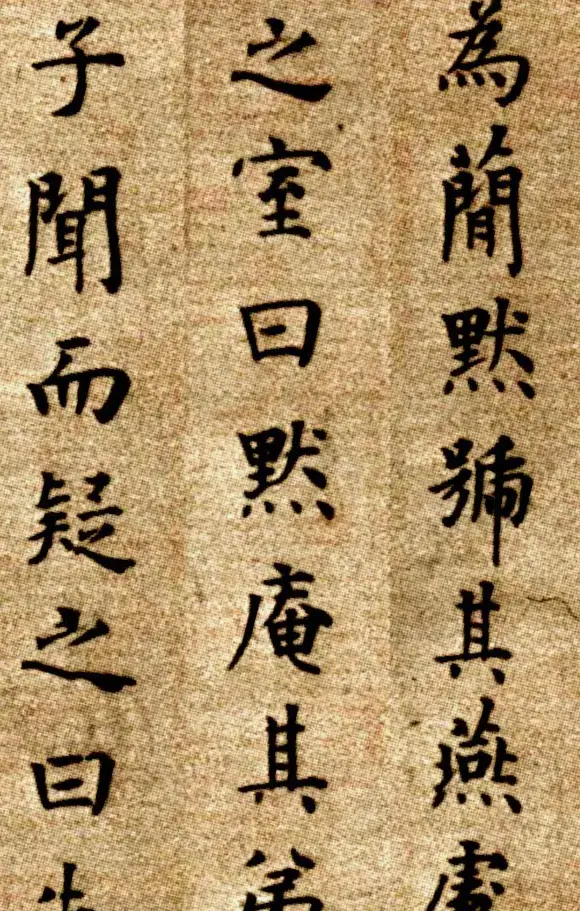 為簡默號其燕處
之室曰默庵其弟
子聞而疑之曰